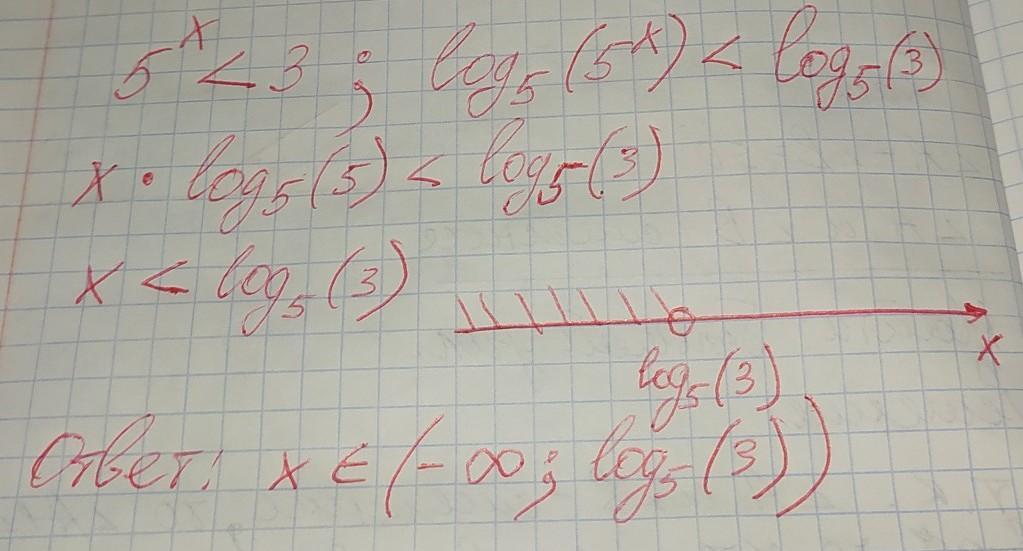 5^x < 3 ; log₅(5^x) < log₅(3)
x • log₅(5) < log₅(3)
x < log₅(3)
x
log₅(3)
Ответ: x ∈ (-∞; log₅(3))